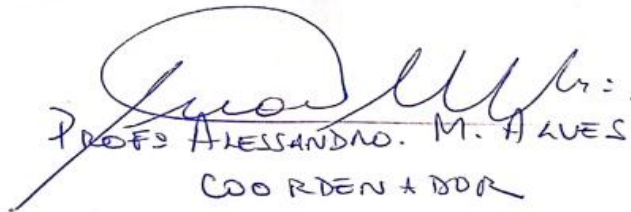 PROFº ALESSANDRO. M. ALVES
COORDENADOR